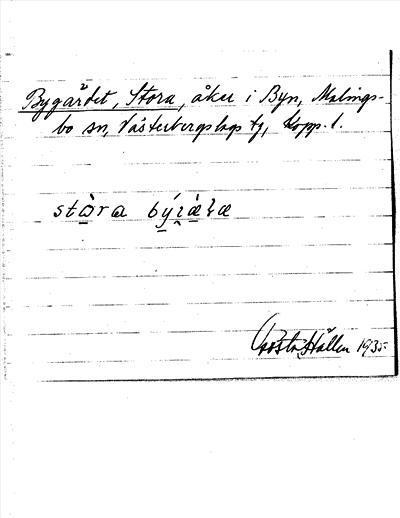 Bygärdet, Stora, åker i Byn, Malings-
bo sn, Västerbergslags tg, Kopp. l.
stòra býi̯àɫæ
Gösta Hållen 1935